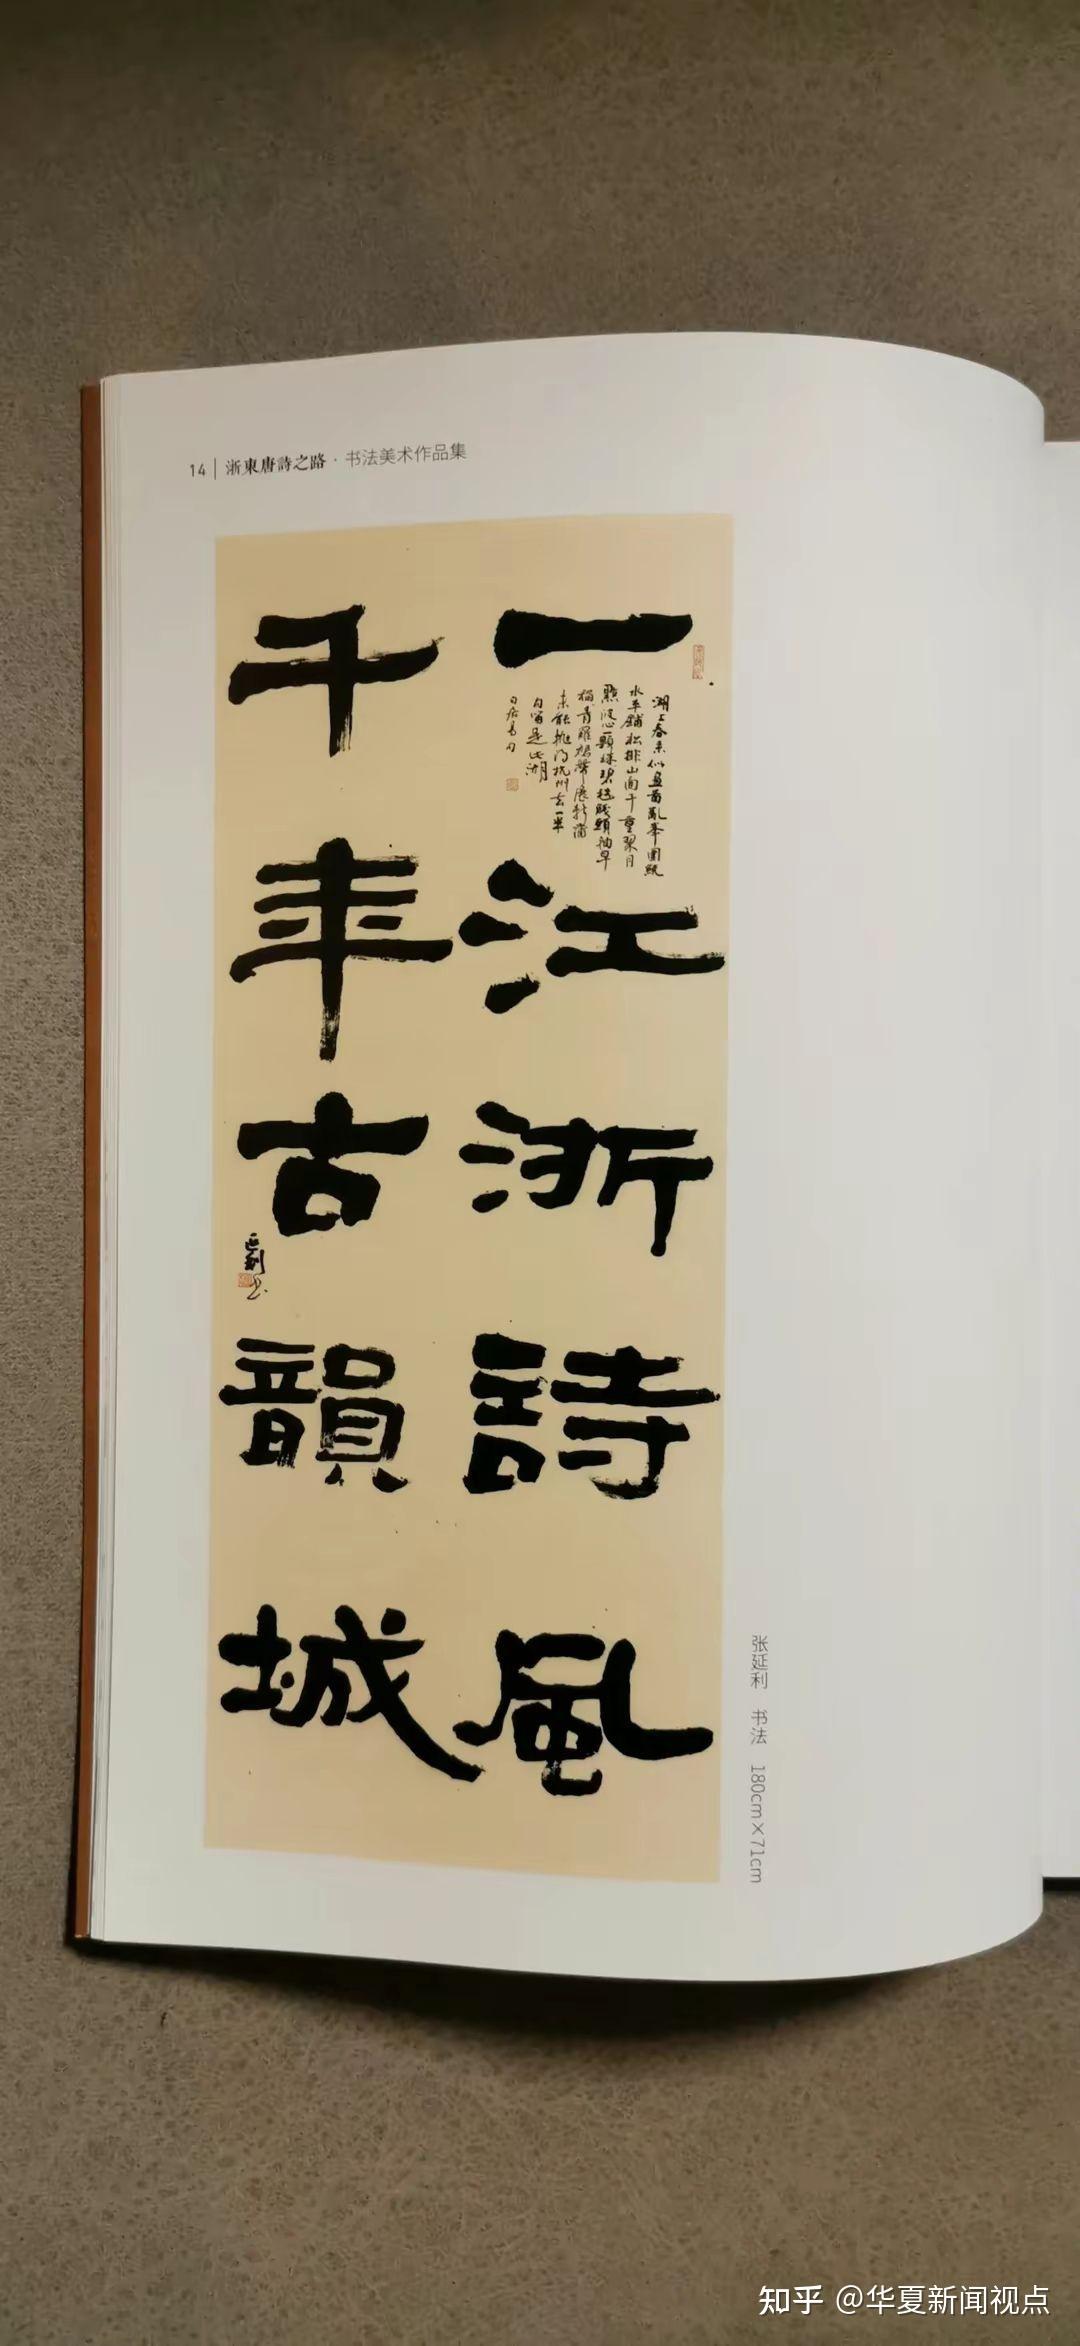 14 | 浙東唐詩之路 · 书法美术作品集
一江浙詩風
千年古韻城
湖上春来似畫圖亂峯圍繞
水平鋪松排山面千重翠月
點波心一顆珠碧毯线頭抽早
稻青羅裙帶展新蒲
未能抛得杭州去一半
勾留是此湖
白居易句
张延利 书法 180cm×71cm
知乎 @华夏新闻视点